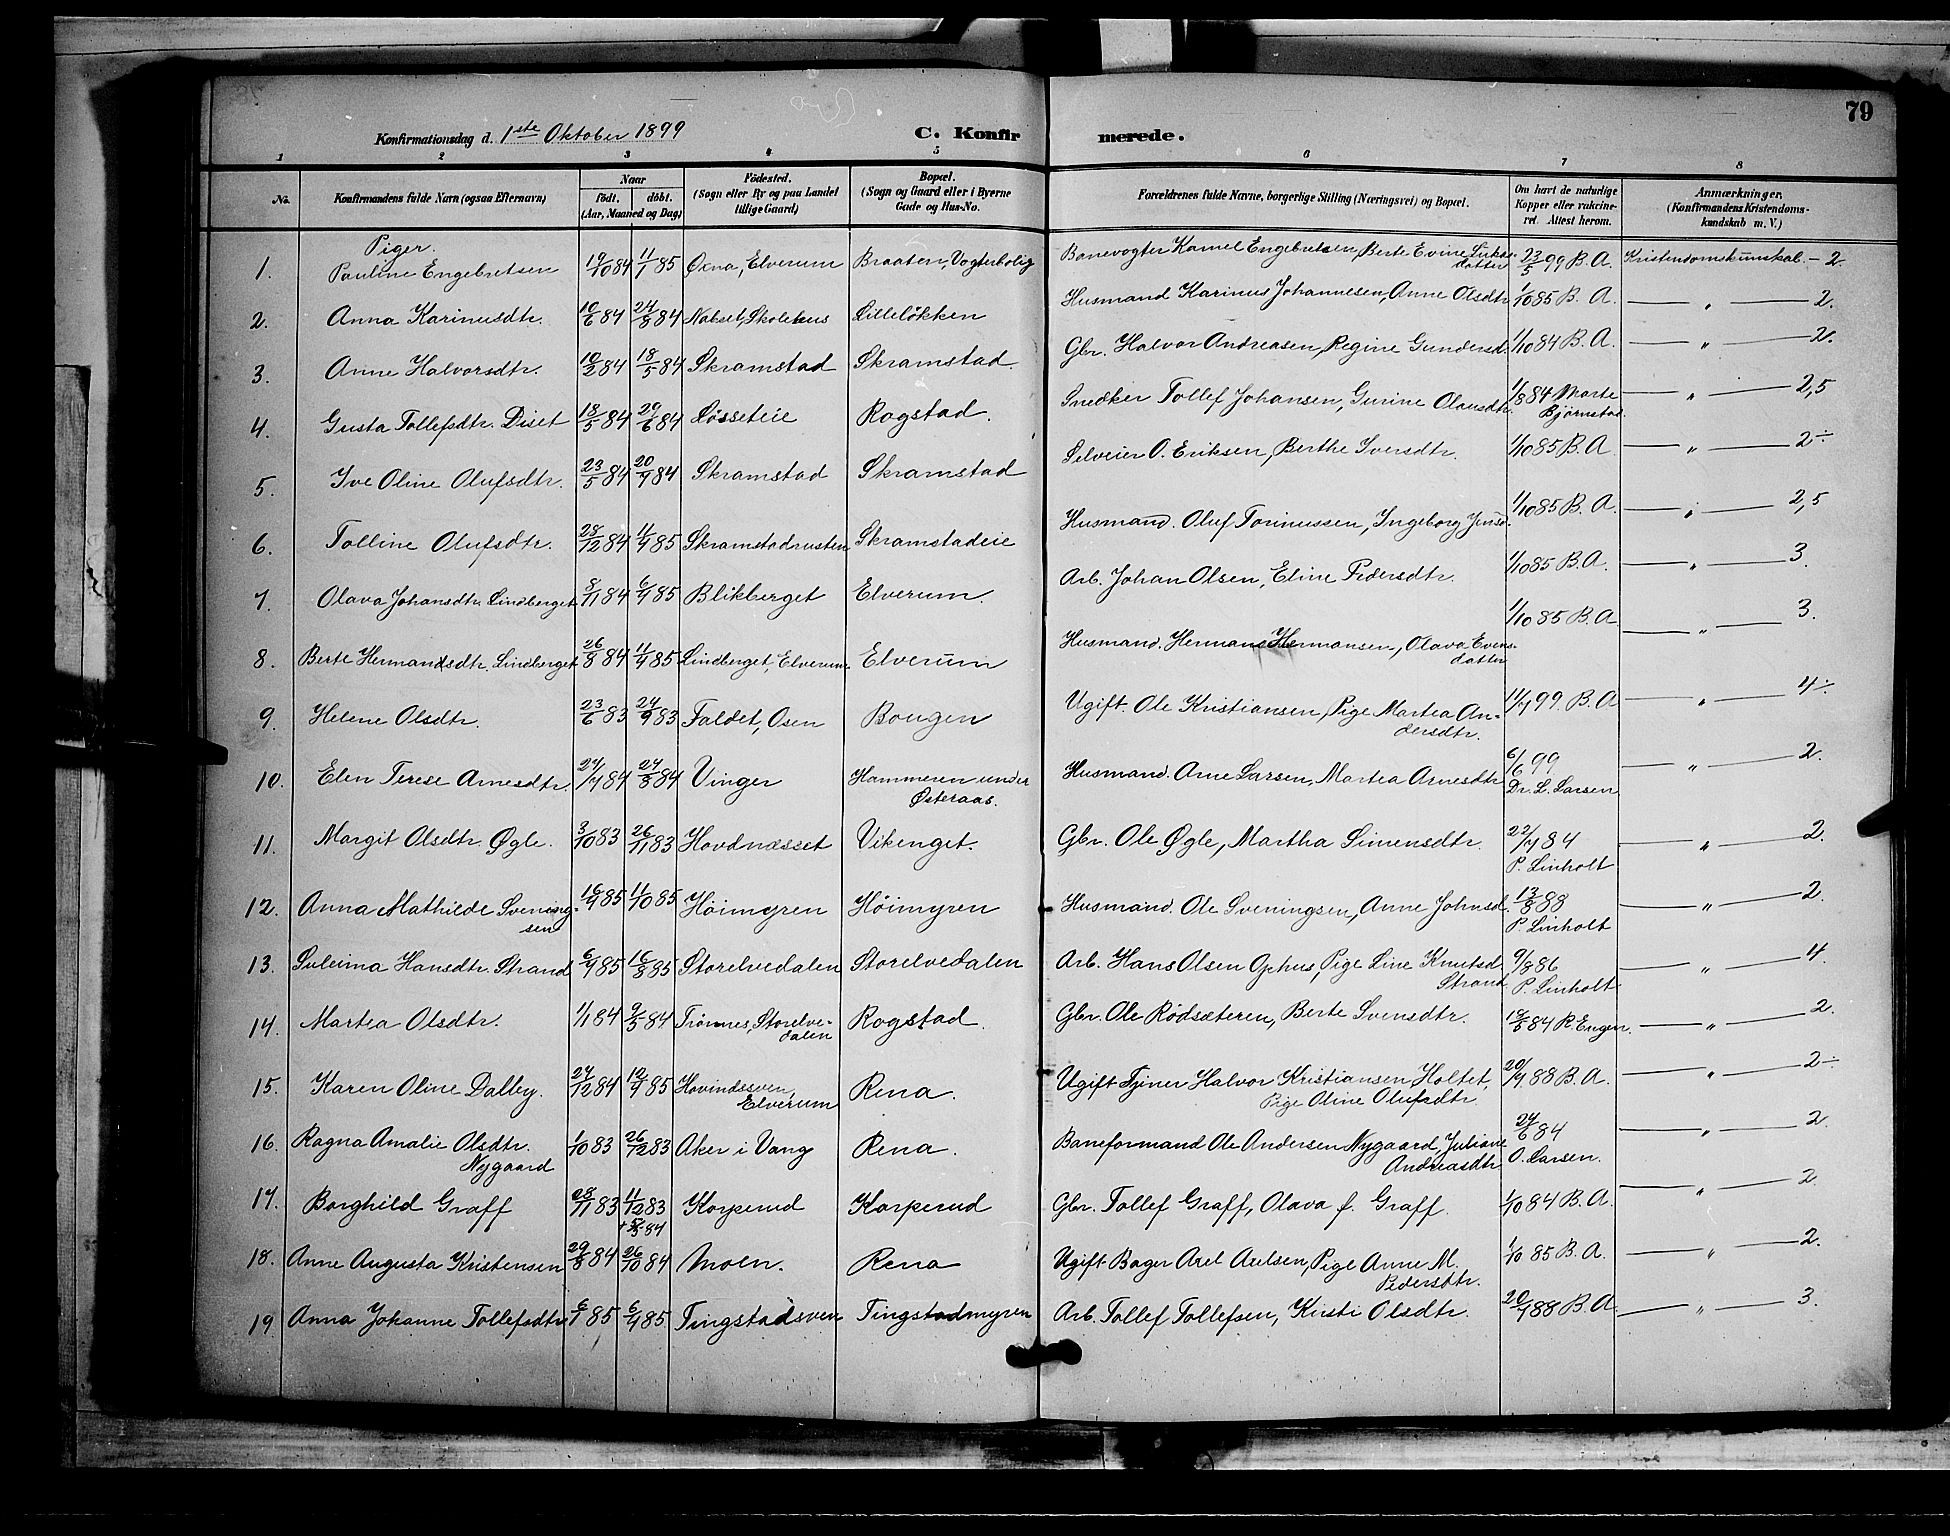 79
Konfirmationsdag d. 1ste Oktober 1899 C. Konfirmerede.
1 2 3 4 5 6 7 8
No. Konfirmandens fulde Navn (ogsaa Efternavn) Naar født. døbt. (Aar, Maaned og Dag) Födested. (Sogn eller By og paa Landet tillige Gaard) Bopæl. (Sogn og Gaard eller i Byerne Gade og Hus-No. Forældrenes fulde Navne, borgerlige Stilling (Næringsvei) og Bopæl. Om havt de naturlige Kopper eller vakcineret. Attest herom. Anmærkninger. (Konfirmandens Kristendomskundskab m. V.)
Piger.
1. Pauline Engebretsen 19/10 84 11/1 85 Øxna, Elverum Braaten, Vogterbolig Banevogter Kamel Engebretsen, Berte Evine Lukasdatter 23/5 99 B. A. Kristendomskunskab - 2.
2. Anna Karinusdtr. 10/6 84 24/8 84 Nabset, Skolehus Lilleløkken Husmand Karinus Johannesen, Anne Olsdtr 1/10 85 B. A. — " — 2.
3. Anne Halvorsdtr. 10/2 84 18/5 84 Skramstad Skramstad. Gbr. Halvor Andreasen, Regine Gundersd. 1/10 84 B. A. — " — 2.
4. Gusta Tollefsdtr. Diset 18/5 84 29/6 84 Løsseteie Rogstad. Snedker Tollef Johansen, Gurine Olausdtr. 1/8 84 Marte Bjørnstad. — " — 2,5
5. Ive Oline Olufsdtr. 23/5 84 20/7 84 Skramstad Skramstad Selveier O. Eriksen, Berthe Iversdtr. 1/10 85 B. A — " — 2÷
6. Tolline Olufsdtr. 28/12 84 11/4 85 Skramstadrusten Skramstadeie Husmand. Oluf Torinussen, Ingeborg Jensd. 1/10 85 B. A. — " — 2,5
7. Olava Johansdtr. Lindberget 8/11 84 6/4 85 Blikberget Elverum. Arb. Johan Olsen, Eline Pedersdtr. 1/10 85 B. A. — " — 3.
8. Berte Hermandsdtr. Lindberget 26/8 84 11/4 85 Lindberget, Elverum. Elverum Husmand. Hermand Hermansen, Olava Evensdatter 1/10 85 B. A — " — 3.
9. Helene Olsdtr. 23/6 83 24/9 83 Faldet, Osen Bougen Ugift. Ole Kristiansen, Pige Martea Andersdtr. 11/7 99. B. A — " — 4÷
10. Elen Terese Arnesdtr. 24/4 84 24/8 84 Vinger Hammeren under Østeraas. Husmand. Arne Larsen, Martea Arnesdtr 6/6 99 Dr. L. Larsen — " — 2.
11. Margit Olsdtr. Øgle. 3/10 83 26/11 83 Hovdnæsset Vikenget. Gbr. Ole Øgle, Martha Simensdtr. 22/7 84 P. Linholt — " — 2.
12. Anna Mathilde Sveningsen 16/4 85 11/10 85 Høimyren Høimyren Husmand. Ole Sveningsen, Anne Johnsd. 13/8 88 P. Linholt — " — 2.
13. Suleima Hansdtr. Strand 6/4 85 16/8 85 Storelvedalen Storelvedalen Arb. Hans Olsen Ophus, Pige Line Knutsd. Strand 9/8 86 P. Linholt — " — 4.
14. Martea Olsdtr. 1/1 84 2/3 84 Trønnes, Storelvedalen Rogstad. Gbr. Ole Rødsæteren, Berte Svensdtr. 19/5 84 R. Engen. — " — 2.
15. Karen Oline Dalby. 24/12 84 12/4 85 Hovindssven, Elverum Rena. Ugift Tjener Halvor Kristiansen Holtet, Pige Oline Olufsdtr. 20/7 88 B. A. — " — 2÷
16. Ragna Amalie Olsdtr. Nygaard 1/10 83 26/12 83 Aker i Vang Rena. Baneformand Ole Andersen Nygaard, Juliane Andreasdtr. 24/6 84 O. Larsen. — " — 2.
17. Borghild Graff 28/11 83 11/12 83 Korperud Korperud Gbr. Tollef Graff, Olava f. Graff. 1/10 84 B. A. — " — 2.
18. Anne Augusta Kristensen 29/8 84 26/10 84 Moen. Rena Ugift. Bager Axel Axelsen, Pige Anne M. Pedersdtr. 1/10 85 B. A. — " — 2.
19 Anna Johanne Tollefsdtr. 6/1 85 6/4 85 Tingstadsven Tingstadmyren Arb. Tollef Tollefsen, Kirsti Olsdtr. 20/7 88 B. A. — " — 3.